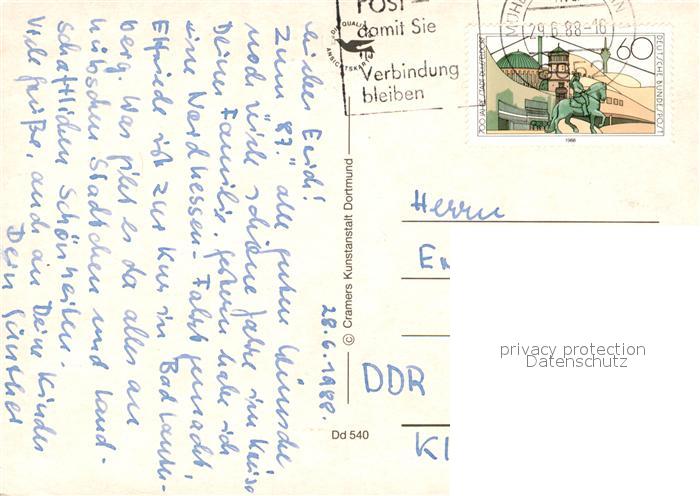 28.6.1988.
Lieber Erich!
Zum 87. alle guten Wünsche
noch viele schöne Jahre im Kreise
Deiner Familie. gestern habe ich
eine Nordhessen-Fahrt gemacht,
Elfriede ist zur Kur in Bad
berg. Was gibt es da alles an
hübschen Städtchen und Land-
schaftlichen Schönheiten.
Viele Grüße, auch an Deine Kinder
Dein Günther
QUALITÄTS
ANSICHTSKARTEN
© Cramers Kunstanstalt Dortmund
Dd 540
POST –
damit Sie
in
Verbindung
bleiben
29.6.88-16
60
DEUTSCHE BUNDESPOST
700 JAHRE STADT DÜSSELDORF
1988
Herrn
DDR
Kl
privacy protection
Datenschutz